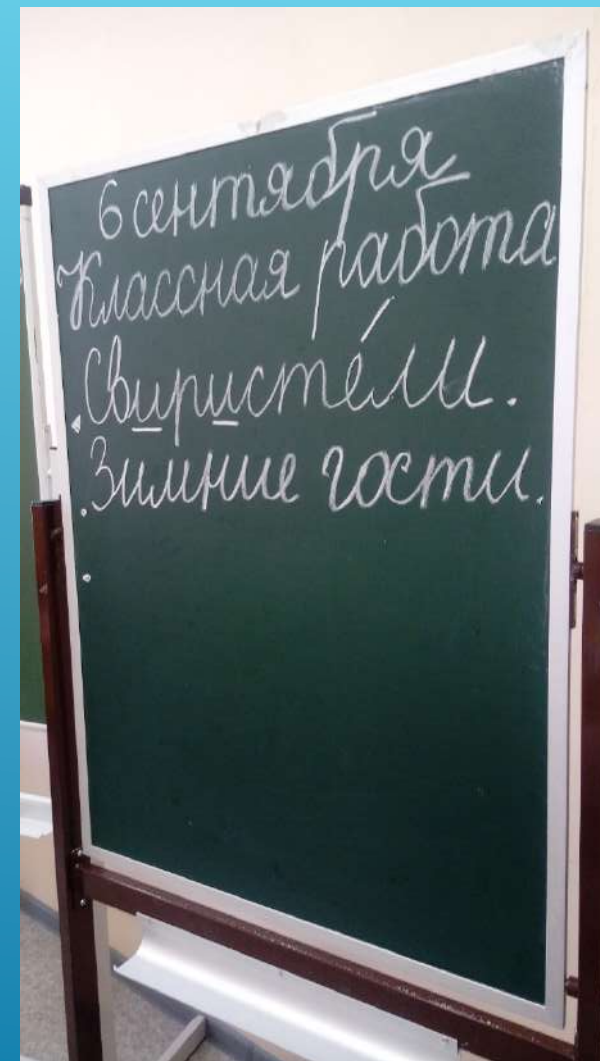 6 сентября
Классная работа
Свиристе́ли.
Зимние гости.